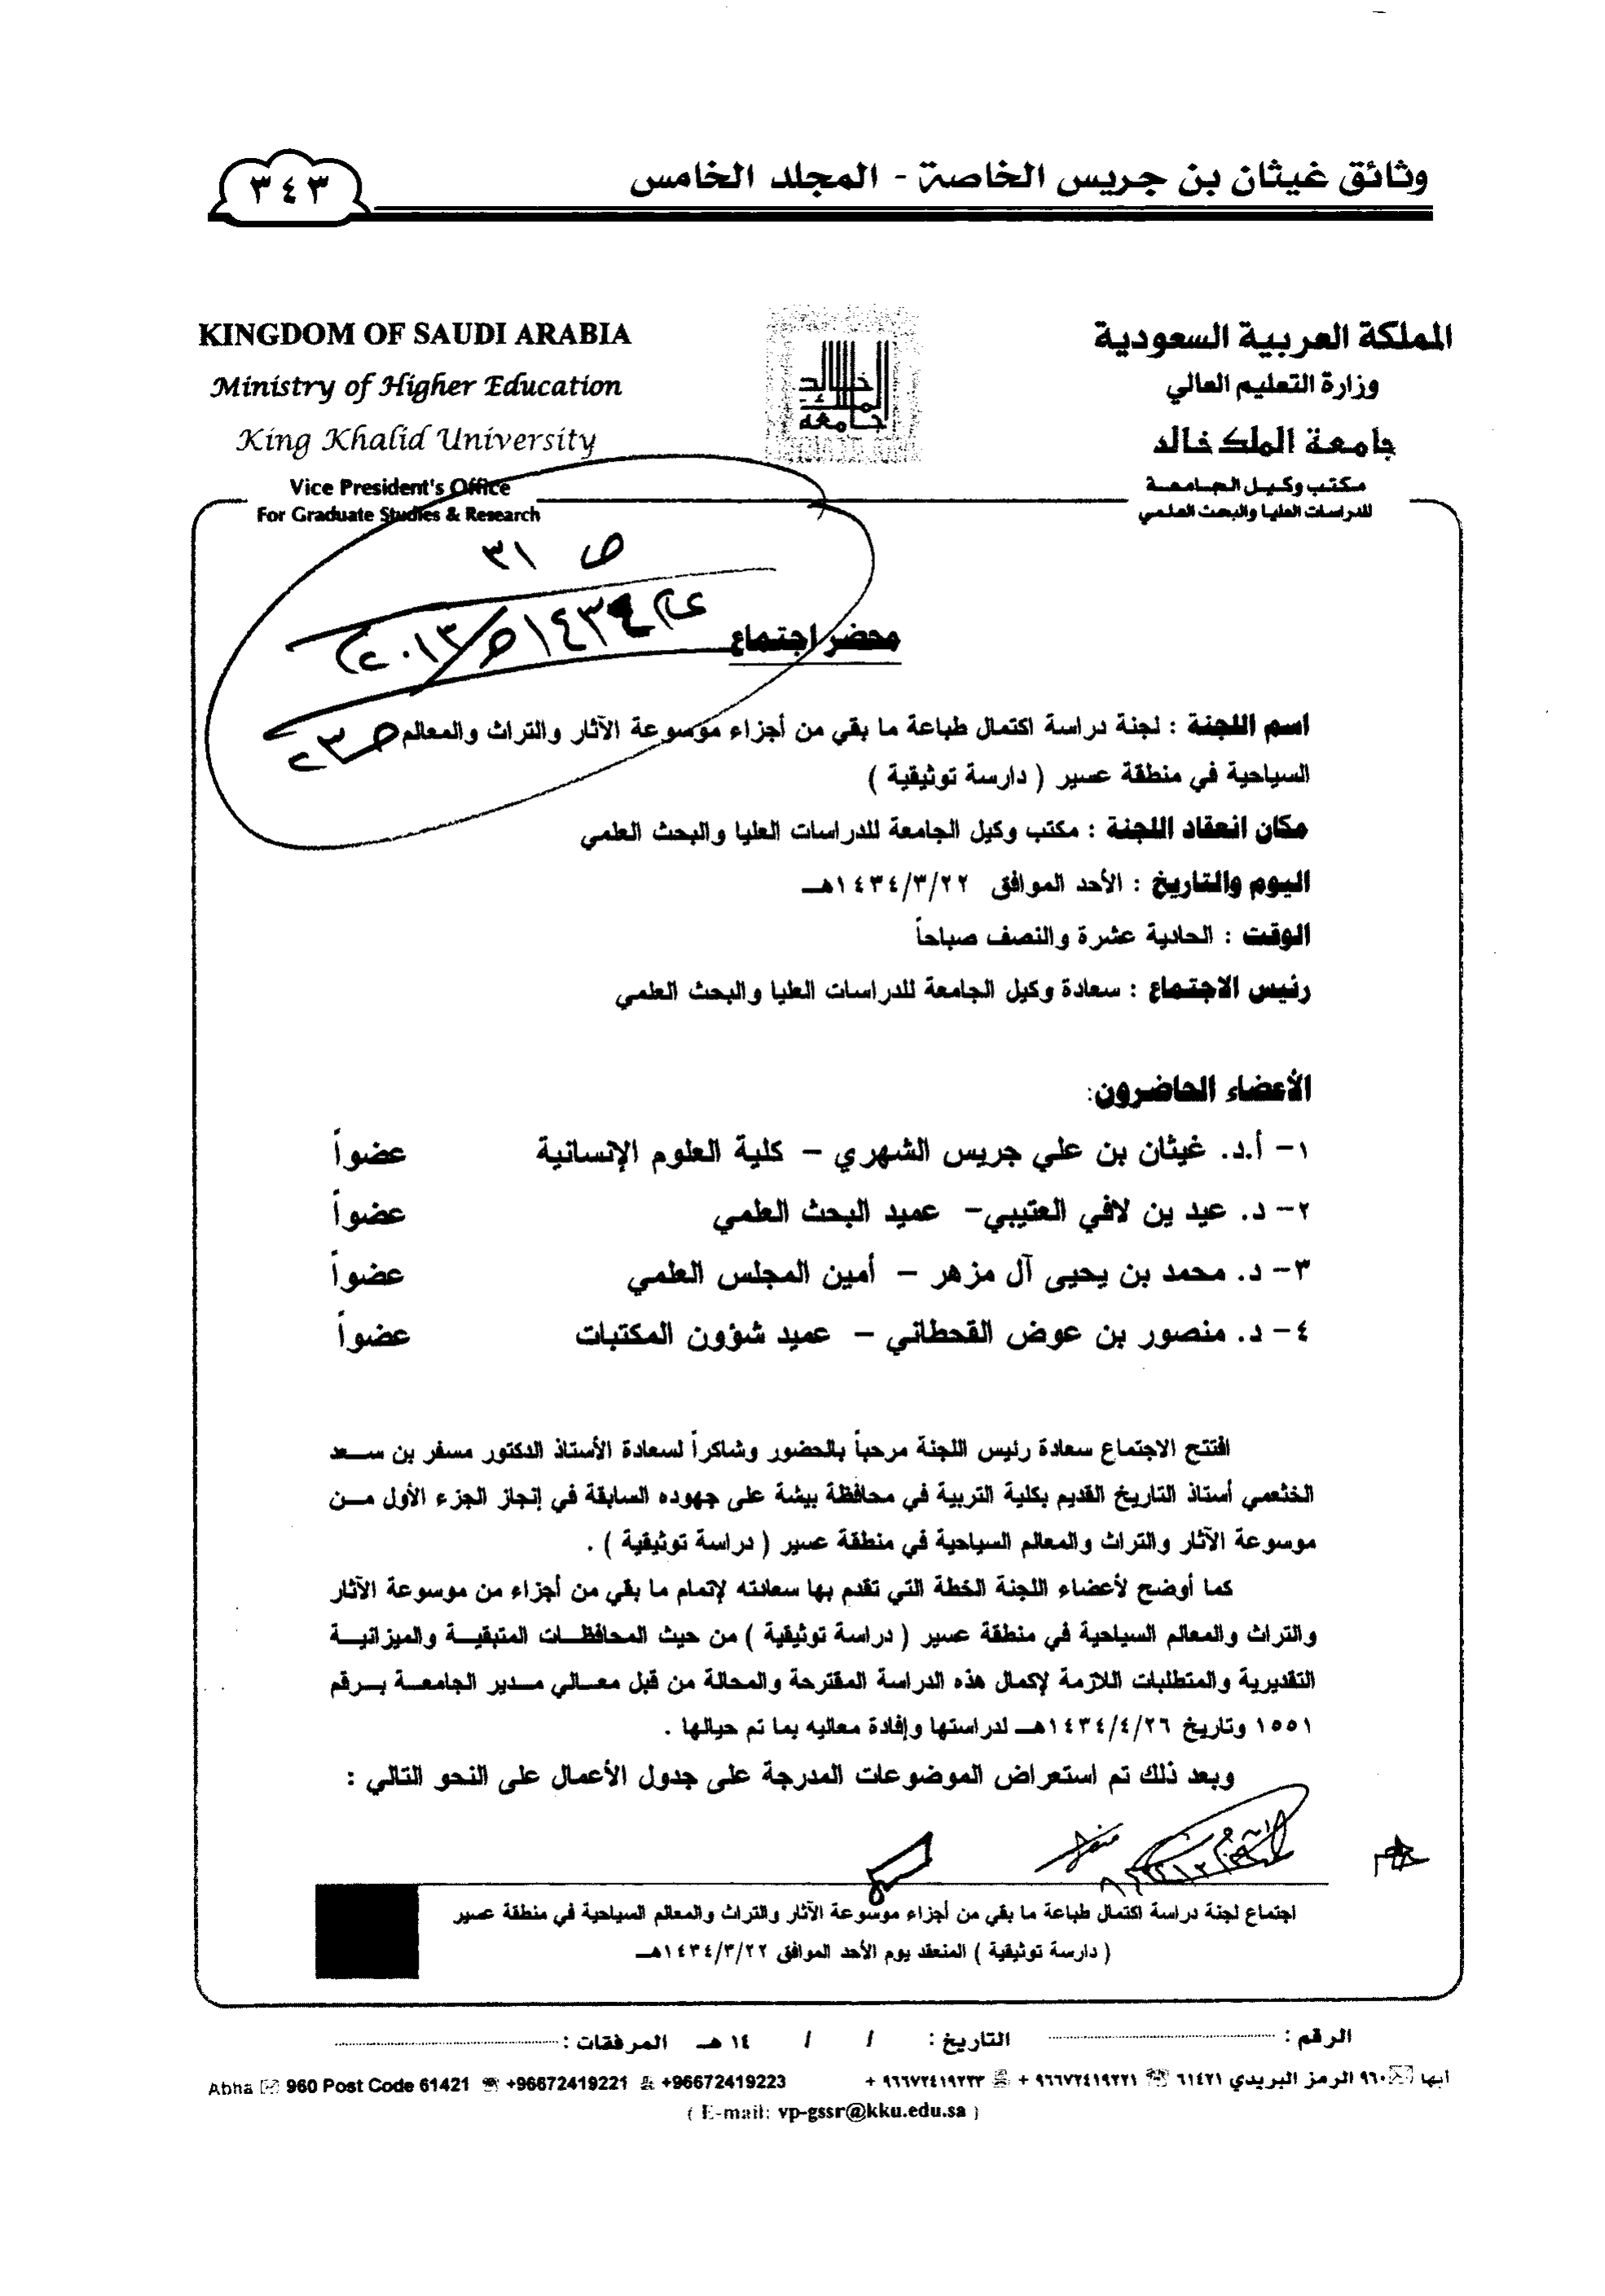 وثائق غيثان بن جريس الخاصة - المجلد الخامس
٣٤٣
المملكة العربية السعودية
وزارة التعليم العالي
جامعة الملك خالد
مكتب وكيل الجامعة
للدراسات العليا والبحث العلمي
جامعة الملك خالد
KINGDOM OF SAUDI ARABIA
Ministry of Higher Education
King Khalid University
Vice President's Office
For Graduate Studies & Research
ص ٣١
عام ١٤٣٤هـ/٢٠١٣م
محضر اجتماع
اسم اللجنة : لجنة دراسة اكتمال طباعة ما بقي من أجزاء موسوعة الآثار والتراث والمعالم
السياحية في منطقة عسير ( دارسة توثيقية )
مكان انعقاد اللجنة : مكتب وكيل الجامعة للدراسات العليا والبحث العلمي
اليوم والتاريخ : الأحد الموافق ١٤٣٤/٣/٢٢هـ
الوقت : الحادية عشرة والنصف صباحاً
رئيس الاجتماع : سعادة وكيل الجامعة للدراسات العليا والبحث العلمي
الأعضاء الحاضرون:
١- أ.د. غيثان بن علي جريس الشهري – كلية العلوم الإنسانية عضواً
٢- د. عيد بن لافي العتيبي- عميد البحث العلمي عضواً
٣- د. محمد بن يحيى آل مزهر – أمين المجلس العلمي عضواً
٤- د. منصور بن عوض القحطاني – عميد شؤون المكتبات عضواً
افتتح الاجتماع سعادة رئيس اللجنة مرحباً بالحضور وشاكراً لسعادة الأستاذ الدكتور مسفر بن سعد
الخثعمي أستاذ التاريخ القديم بكلية التربية في محافظة بيشة على جهوده السابقة في إنجاز الجزء الأول من
موسوعة الآثار والتراث والمعالم السياحية في منطقة عسير ( دراسة توثيقية ) .
كما أوضح لأعضاء اللجنة الخطة التي تقدم بها سعادته لإتمام ما بقي من أجزاء من موسوعة الآثار
والتراث والمعالم السياحية في منطقة عسير ( دراسة توثيقية ) من حيث المحافظات المتبقية والميزانية
التقديرية والمتطلبات اللازمة لإكمال هذه الدراسة المقترحة والمحالة من قبل معالي مدير الجامعة برقم
١٥٥١ وتاريخ ١٤٣٤/٤/٢٦هـ لدراستها وإفادة معاليه بما تم حيالها .
وبعد ذلك تم استعراض الموضوعات المدرجة على جدول الأعمال على النحو التالي :
اجتماع لجنة دراسة اكتمال طباعة ما بقي من أجزاء موسوعة الآثار والتراث والمعالم السياحية في منطقة عسير
( دارسة توثيقية ) المنعقد يوم الأحد الموافق ١٤٣٤/٣/٢٢هـ
الرقم : التاريخ : / / ١٤ هـ المرفقات :
ابها ٩٦٠ الرمز البريدي ٦١٤٢١ ٩٦٦٧٢٤١٩٢٢١ + ٩٦٦٧٢٤١٩٢٢٣ +
Abha 960 Post Code 61421 +96672419221 +96672419223
( E-mail: vp-gssr@kku.edu.sa )